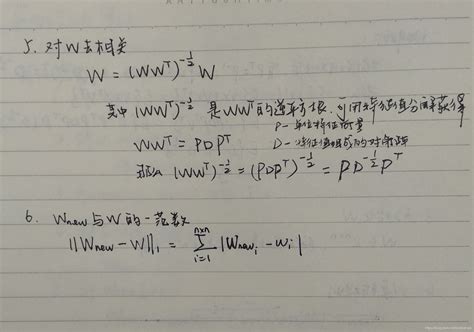 5. 对W去相关
W = (WWᵀ)^{-1/2} W
其中 (WWᵀ)^{-1/2} 是WWᵀ的逆平方根，可用特征值分解获得
P - 单位特征向量
WWᵀ = PDPᵀ D - 特征值组成的对角阵
那么 (WWᵀ)^{-1/2} = (PDPᵀ)^{-1/2} = PD^{-1/2}Pᵀ
6. Wnew与W的一范数
||Wnew - W||₁ = ∑_{i=1}^{n×n} |Wnewᵢ - wᵢ|